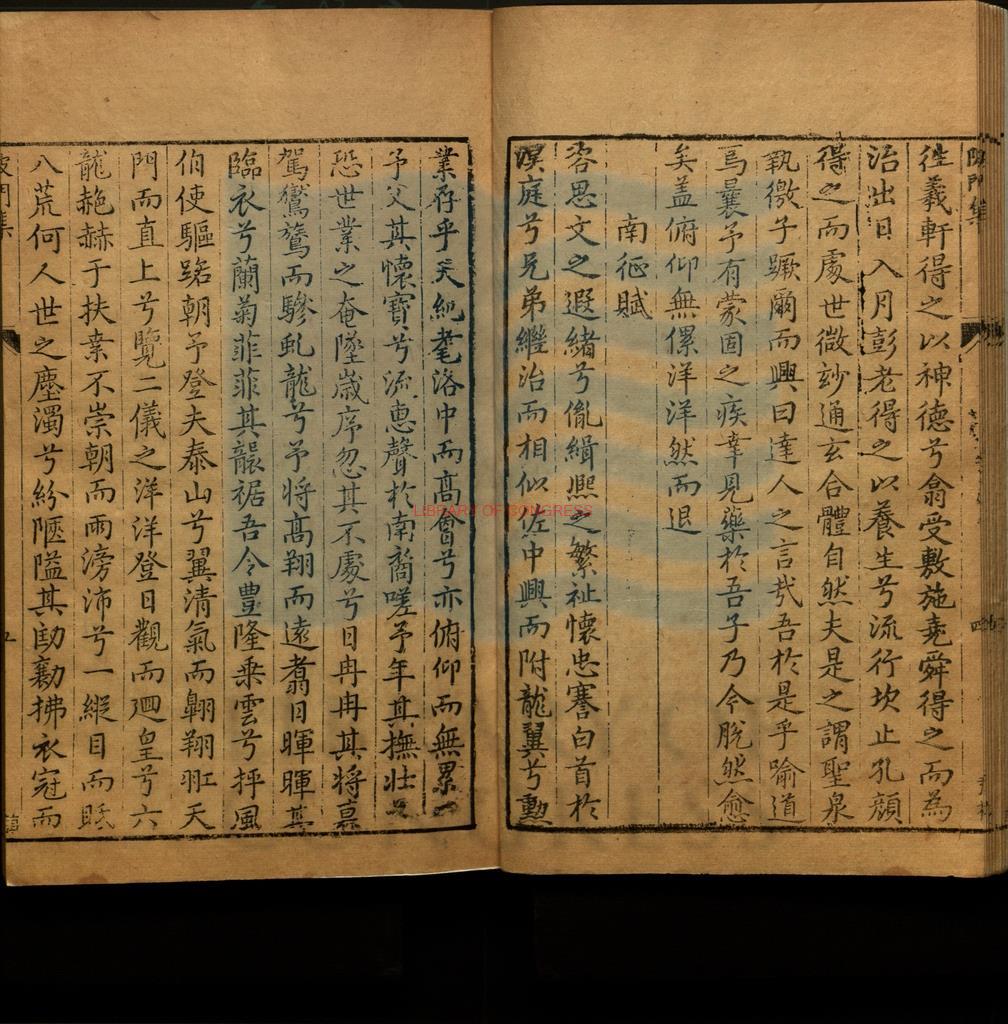 往羲軒得之以神德兮翕受敷施堯舜得之而為
治出日入月彭老得之以養生兮流行坎止孔顏
得之而處世微玅通玄合體自然夫是之謂聖泉
執徵子蹶爾而興曰達人之言哉吾於是乎喻道
焉曩予有蒙固之疾幸見藥於吾子乃今脫然愈
矣盖俯仰無傫洋洋然而退
南征賦
咨思文之遐緒兮胤緝熈之繁祉懷忠謇白首於
漢庭兮兄弟繼治而相似佐中興而附龍翼兮勲
業存乎天紀耄洛中而高會兮亦俯仰而無累
予父其懷寶兮流惠聲於南裔嗟予年其撫壯
恐世業之奄墜歲序忽其不處兮日冉冉其將暮
駕鸑鷟而驂虬龍兮予將高翔而遠翥日暉暉其
臨衣兮蘭菊菲菲其襲裾吾令豊隆乗雲兮抨風
伯使驅
朝予登夫泰山兮翼清氣而翺翔
天
門而直上兮覽二儀之洋洋登日觀而廻皇兮六
龍赩赫于扶桒不崇朝而雨滂沛兮一縱目而
八荒何人世之塵濁兮紛陋隘其劻勷拂衣冠而
LIBRARY OF CONGRESS